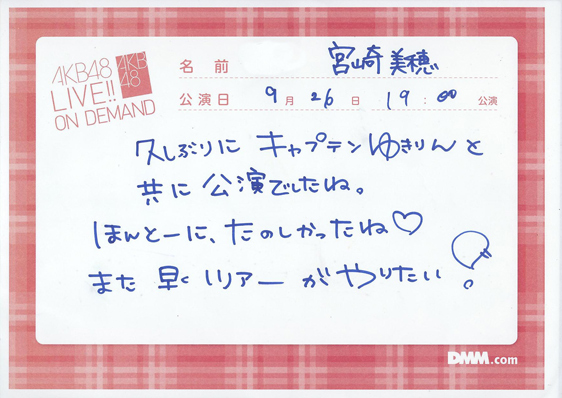 AKB48
LIVE!!
ON DEMAND
AKB
48
名前 宮崎美穂
公演日 9月26日 19:00 公演
久しぶりに キャプテンゆきりんと
共に 公演でしたね。
ほんとーに、たのしかったね♡
また 早く リリアーがやりたい!
DMM.com